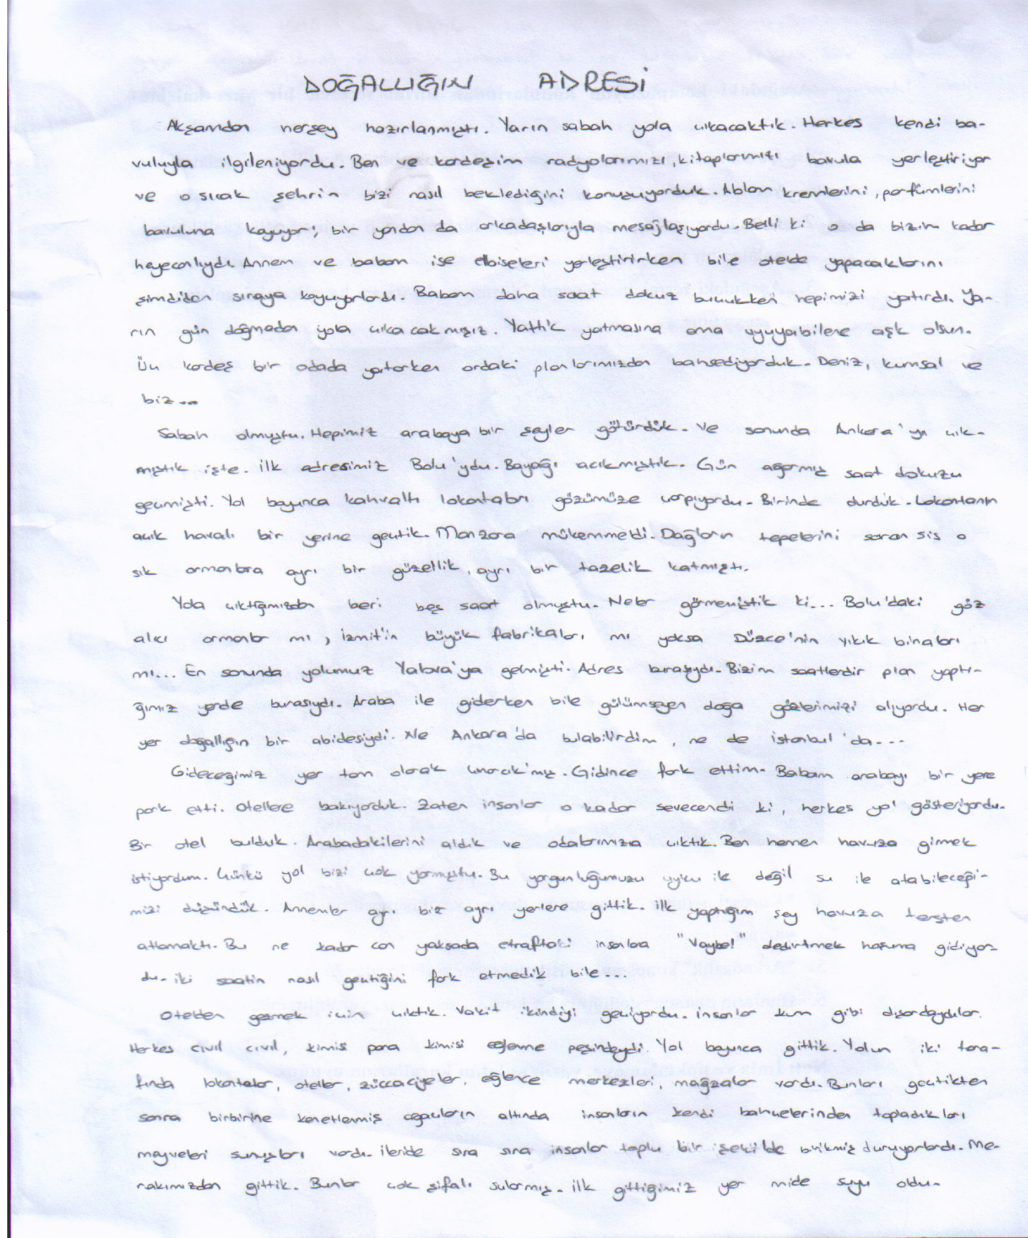 DOĞALLIĞIN ADRESİ
Akşamdan herşey hazırlanmıştı. Yarın sabah yola çıkacaktık. Herkes kendi ba-
vuluyla ilgileniyordu. Ben ve kardeşim radyolarımızı, kitaplarımızı bavula yerleştiriyor
ve o sıcak şehrin bizi nasıl beklediğini konuşuyorduk. Ablam kremlerini, parfümlerini
bavuluna koyuyor, bir yandan da arkadaşlarıyla mesajlaşıyordu. Belli ki o da bizim kadar
heyecanlıydı. Annem ve babam ise elbiseleri yerleştirirken bile otelde yapacaklarını
şimdiden sıraya koyuyorlardı. Babam daha saat dokuz buçukken hepimizi yatırdı. Ya-
rın gün doğmadan yola çıkacakmışız. Yattık yatmasına ama uyuyabilene aşk olsun.
Üç kardeş bir odada yatarken ordaki planlarımızdan bahsediyorduk. Deniz, kumsal ve
biz...
Sabah olmuştu. Hepimiz arabaya bir şeyler götürdük. Ve sonunda Ankara'yı çık-
mıştık işte. İlk adresimiz Bolu'ydu. Bayağı acıkmıştık. Gün ağarmış saat dokuzu
geçmişti. Yol boyunca kahvaltı lokantaları gözümüze çarpıyordu. Birinde durduk. Lokantanın
açık havalı bir yerine geçtik. Manzara mükemmeldi. Dağların tepelerini saran sis o
sık ormanlara ayrı bir güzellik, ayrı bir tazelik katmıştı.
Yola çıktığımızdan beri beş saat olmuştu. Neler görmemiştik ki... Bolu'daki göz
alıcı ormanlar mı, İzmit'in büyük fabrikaları mı yoksa Düzce'nin yıkık binaları
mı... En sonunda yolumuz Yalova'ya gelmişti. Adres burasıydı. Bizim saatlerdir plan yaptı-
ğımız yerde burasıydı. Araba ile giderken bile gülümseyen doğa gözlerimizi alıyordu. Her
yer doğallığın bir abidesiydi. Ne Ankara'da bulabilirdim, ne de İstanbul'da...
Gideceğimiz yer tam olarak Çınarcık'mış. Gidince fark ettim. Babam arabayı bir yere
park etti. Otellere bakıyorduk. Zaten insanlar o kadar sevecendi ki, herkes yol gösteriyordu.
Bir otel bulduk. Arabadakilerini aldık ve odalarımıza çıktık. Ben hemen havuza girmek
istiyordum. Çünkü yol bizi çok yormuştu. Bu yorgunluğumuzu uyku ile değil su ile atabileceği-
mizi düşündük. Annemler ayrı biz ayrı yerlere gittik. İlk yaptığım şey havuza tersten
atlamaktı. Bu ne kadar can yaksada etraftaki insanlara "Vaybe!" dedirtmek hoşuma gidiyor-
du. İki saatin nasıl geçtiğini fark etmedik bile...
Otelden gezmek için çıktık. Vakit ikindiyi geçiyordu. İnsanlar kum gibi dışardaydılar.
Herkes cıvıl cıvıl, kimisi para kimisi eğlenme peşindeydi. Yol boyunca gittik. Yolun iki tara-
fında lokantalar, oteller, züccaciyeler, eğlence merkezleri, mağazalar vardı. Bunları geçtikten
sonra birbirine kenetlenmiş ağaçların altında insanların kendi bahçelerinden topladıkları
meyveleri sunuşları vardı. İleride sıra sıra insanlar toplu bir şekilde birikmiş duruyorlardı. Me-
rakımızdan gittik. Bunlar çok şifalı sularmış. İlk gittiğimiz yer mide suyu oldu.